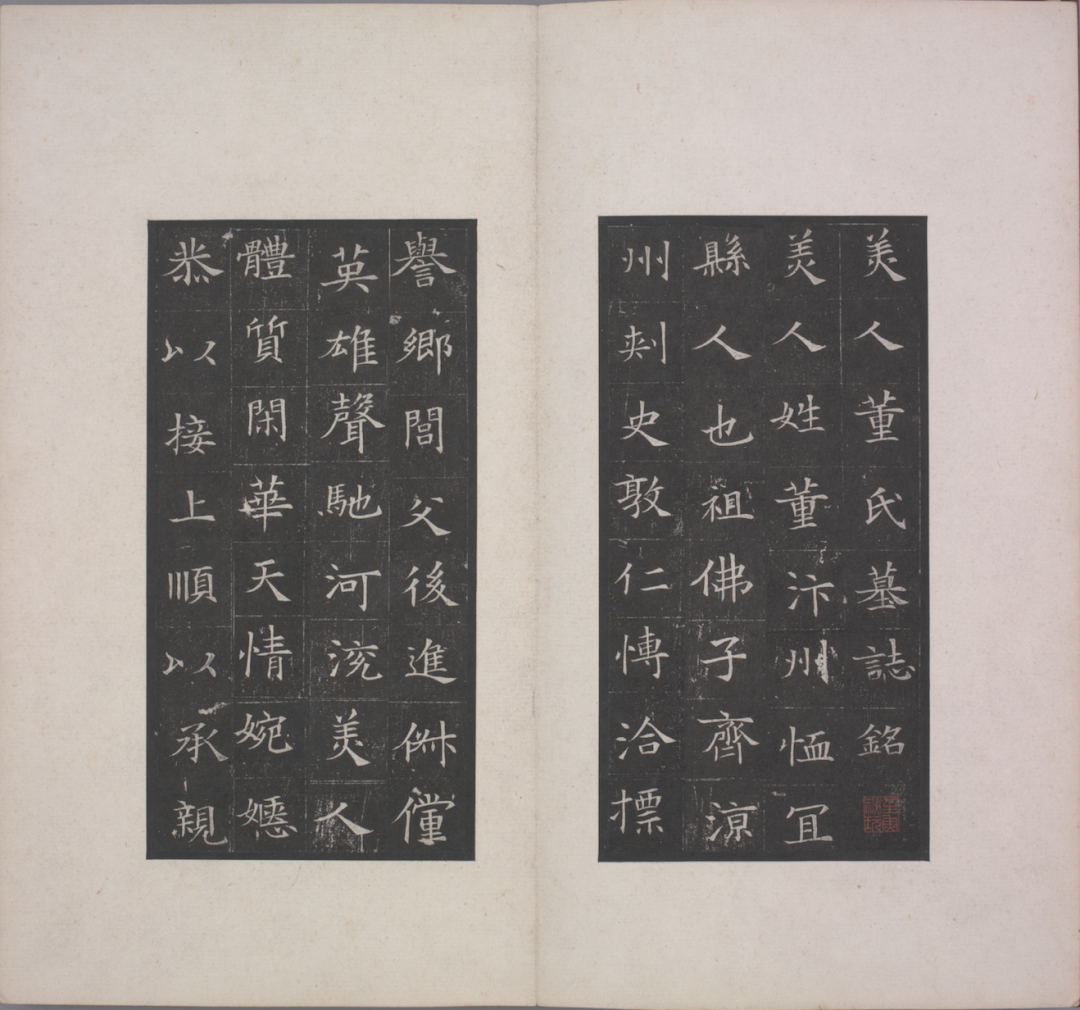 美人董氏墓誌銘
美人姓董汴州恤冝
縣人也祖佛子齊涼
州刾史敦仁愽洽摽
譽鄉閭父後進俶儻
英雄聲馳河沇美人
體質閑華天情婉嫕
恭以接上順以承親